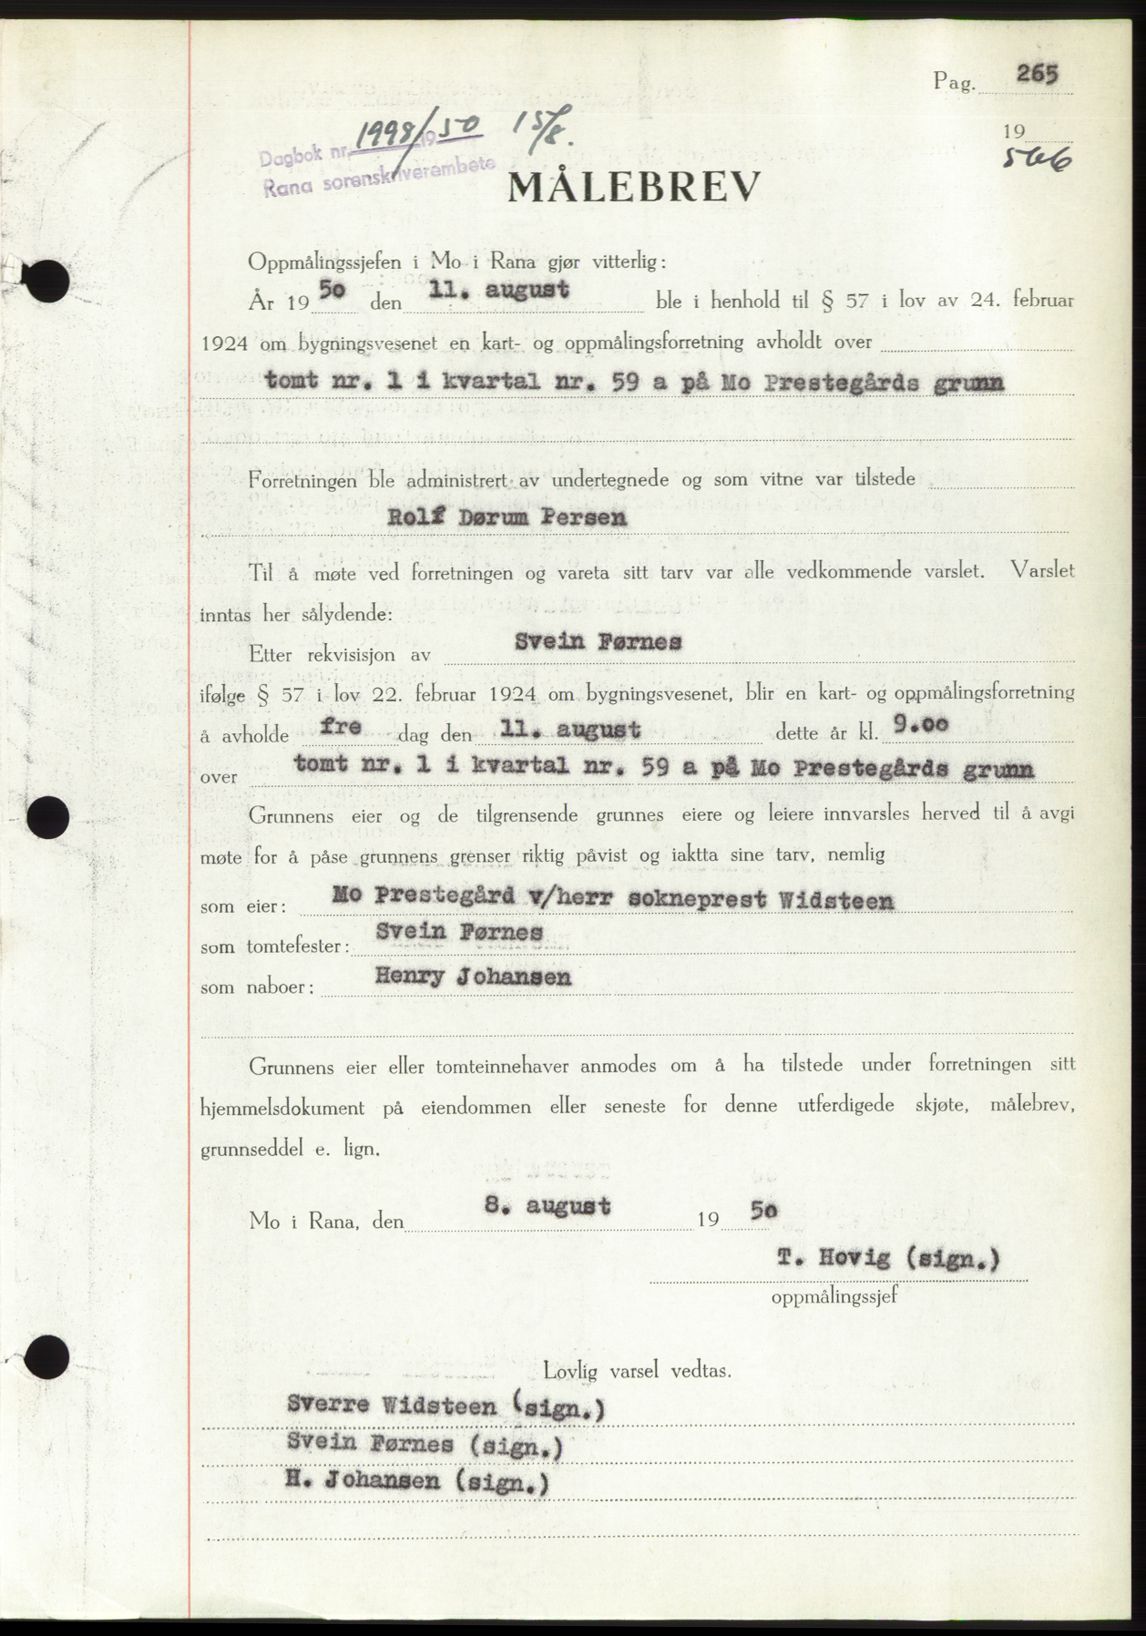 Pag. 265
1998/50 15/8.
19
Dagbok nr. 19
566
Rana sorenskriverembete
MÅLEBREV
Oppmålingssjefen i Mo i Rana gjør vitterlig:
År 19 50 den 11. august ble i henhold til § 57 i lov av 24. februar
1924 om bygningsvesenet en kart- og oppmålingsforretning avholdt over
tomt nr. 1 i kvartal nr. 59 a på Mo Prestegårds grunn
Forretningen ble administrert av undertegnede og som vitne var tilstede
Rolf Dørum Persen
Til å møte ved forretningen og vareta sitt tarv var alle vedkommende varslet. Varslet
inntas her sålydende:
Etter rekvisisjon av Svein Førnes
ifølge § 57 i lov 22. februar 1924 om bygningsvesenet, blir en kart- og oppmålingsforretning
å avholde fre dag den 11. august dette år kl. 9.00
over tomt nr. 1 i kvartal nr. 59 a på Mo Prestegårds grunn
Grunnens eier og de tilgrensende grunnes eiere og leiere innvarsles herved til å avgi
møte for å påse grunnens grenser riktig påvist og iaktta sine tarv, nemlig
som eier: Mo Prestegård v/herr sokneprest Widsteen
som tomtefester: Svein Førnes
som naboer: Henry Johansen
Grunnens eier eller tomteinnehaver anmodes om å ha tilstede under forretningen sitt
hjemmelsdokument på eiendommen eller seneste for denne utferdigede skjøte, målebrev,
grunnseddel e. lign.
Mo i Rana, den 8. august 19 50
T. Hovig (sign.)
oppmålingssjef
Lovlig varsel vedtas.
Sverre Widsteen (sign.)
Svein Førnes (sign.)
H. Johansen (sign.)